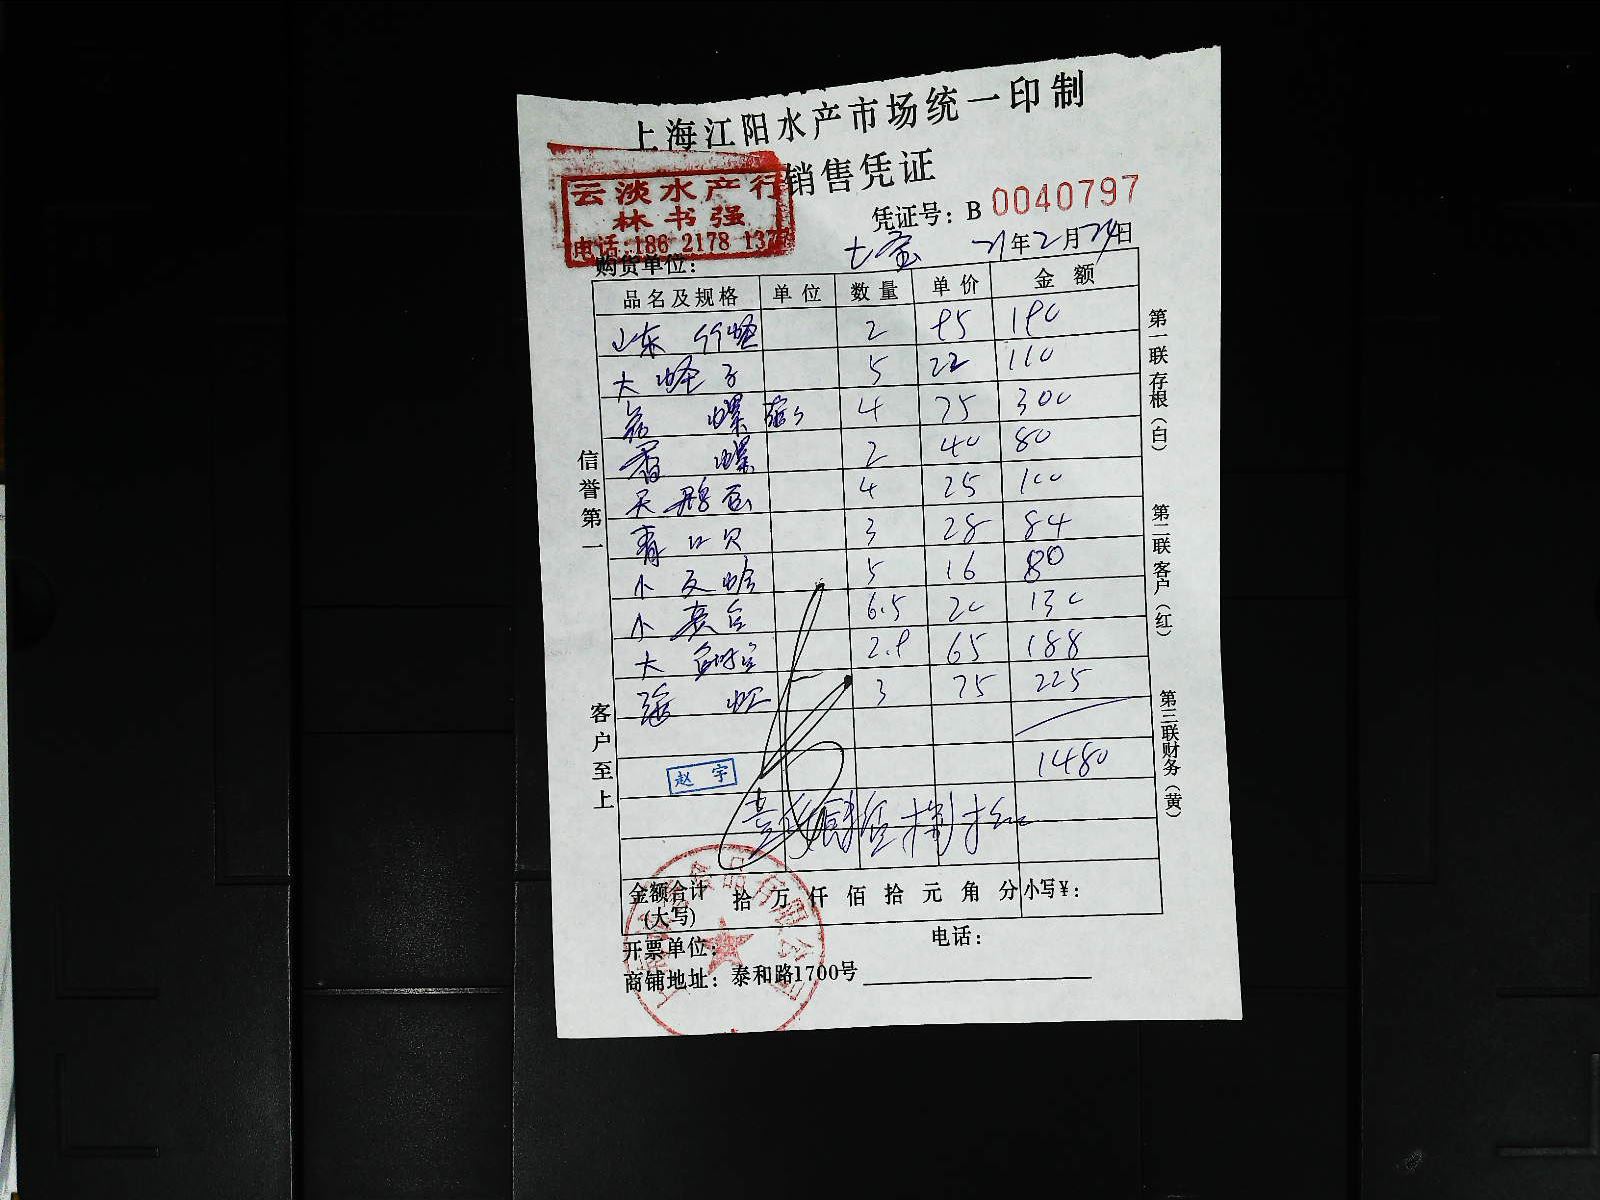 上海江阳水产市场统一印制
销售凭证
云淡水产行
林书强
电话:186 2178 137
凭证号: B 0040797
购货单位: 七宝 21年2月24日
品名及规格 单位 数量 单价 金额
山东 竹蛏 2 95 190
大 蛏子 5 22 110
螺 4 75 300
香 螺 2 40 80
天鹅蛋 4 25 100
青口贝 3 28 84
小 文蛤 5 16 80
小 6.5 20 130
大 2.9 65 188
海 虹 3 75 225
1480
赵宇
金额合计(大写) 拾 万 仟 佰 拾 元 角 分 小写¥:
开票单位: 电话:
商铺地址: 泰和路1700号
信誉第一
客户至上
第一联 存根(白)
第二联 客户(红)
第三联 财务(黄)
食品有限公司